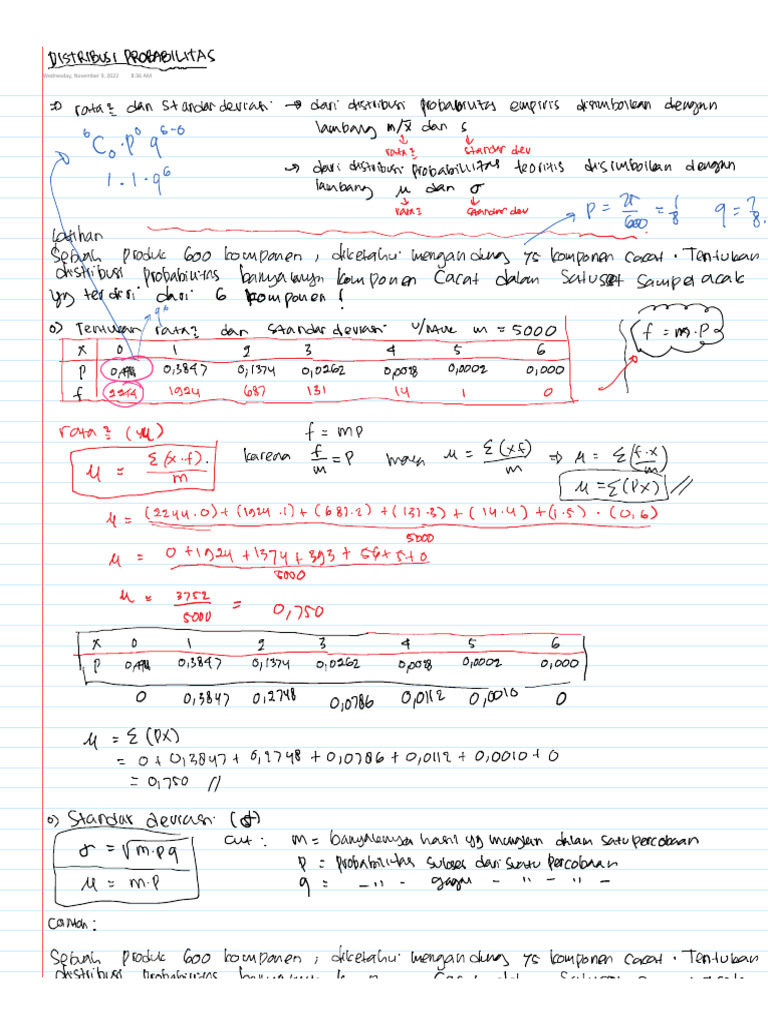 DISTRIBUSI PROBABILITAS
Wednesday, November 9, 2022 8:36 AM
⇒ rata² dan standar deviasi → dari distribusi probabilitas empiris disimbolkan dengan
lambang m/x̄ dan s
rata² standar dev
→ dari distribusi probabilitas teoritis disimbolkan dengan
lambang μ dan σ
rata² standar dev
⁶C₀ · P⁰ q⁶⁻⁰
1 · 1 · q⁶
P = 75/600 = 1/8 q = 7/8
Latihan
Sebuah produk 600 komponen, diketahui mengandung 75 komponen cacat. Tentukan
distribusi probabilitas banyaknya komponen cacat dalam satuset sampel acak
yg terdiri dari 6 komponen!
q⁶
o) Tentukan rata² dan standar deviasi u/ntuk m = 5000
f = m.P
x 0 1 2 3 4 5 6
P 0,3847 0,1374 0,0262 0,0028 0,0002 0,000
f 2244 1924 687 131 14 1 0
rata² (μ)
μ = Σ(x.f)/m
f = mp
karena f/m = P maka μ = Σ(xf)/m ⇒ μ = Σ(f.x/m)
μ = Σ(PX) //
μ = (2244.0)+(1924.1)+(687.2)+(131.3)+(14.4)+(1.5).(0,6)/5000
μ = 0+1924+1374+393+56+5+0/5000
μ = 3752/5000 = 0,750
x 0 1 2 3 4 5 6
P 0,3847 0,1374 0,0262 0,0028 0,0002 0,000
0 0,3847 0,2748 0,0786 0,0112 0,0010 0
μ = Σ(PX)
= 0+0,3847+0,2748+0,0786+0,0112+0,0010+0
= 0,750 //
o) Standar deviasi (σ)
σ = √m.pq
μ = m.P
Cat: m = banyaknya hasil yg mungkin dalam satu percobaan
P = probabilitas sukses dari suatu percobaan
q = -"- gagal -"-"-
Contoh:
Sebuah produk 600 komponen, diketahui mengandung 75 komponen cacat. Tentukan
distribusi probabilitas